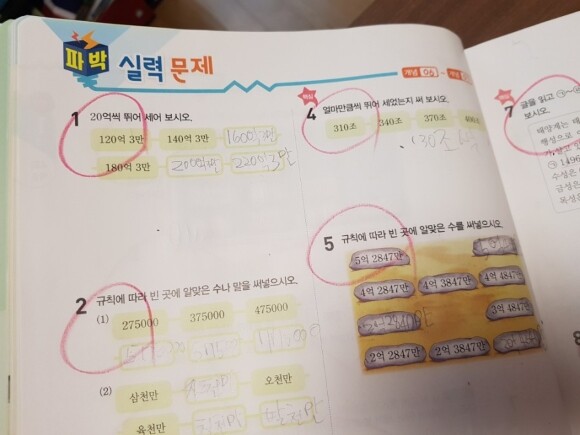 파박 실력 문제
개념 06
1 20억씩 뛰어 세어 보시오.
120억 3만 140억 3만 160억 3만
180억 3만 200억 3만 220억 3만
2 규칙에 따라 빈 곳에 알맞은 수나 말을 써넣으시오.
(1)
275000 375000 475000
(2)
삼천만 사천만 오천만
육천만 칠천만 팔천만
4 얼마만큼씩 뛰어 세었는지 써 보시오.
310조 340조 370조 400조
5 규칙에 따라 빈 곳에 알맞은 수를 써넣으시오.
5억 2847만
4억 2847만 4억 3847만 4억 4847만
3억 4847만
2억 2847만 2억 3847만
7 글을 읽고
보시오.
태양계는 태
행성으로
수성은
금성은
목성은